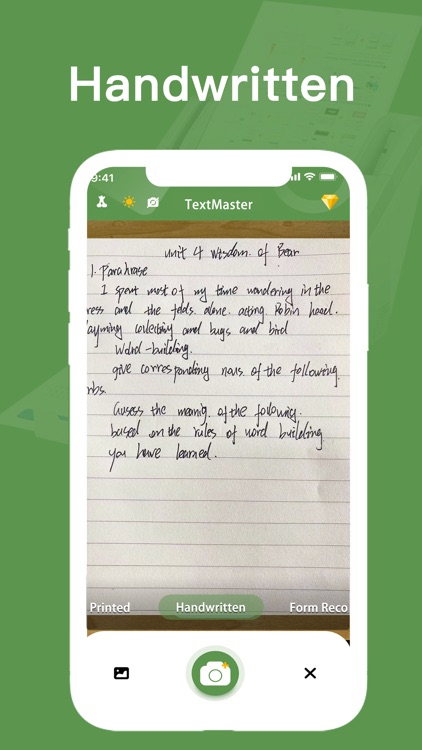 Handwritten
9:41
TextMaster
Unit 4 Wisdom of Bear
1. Parahrase
I spent most of my time wondering in the
ress and the felds. alone. acting Robin head.
ayming collecting and bugs and bird
Word-building.
give corresponding nous. of the following.
rbs.
Gusess the mornig. of the following.
based on the rules of word building
you have learned.
Printed
Handwritten
Form Reco